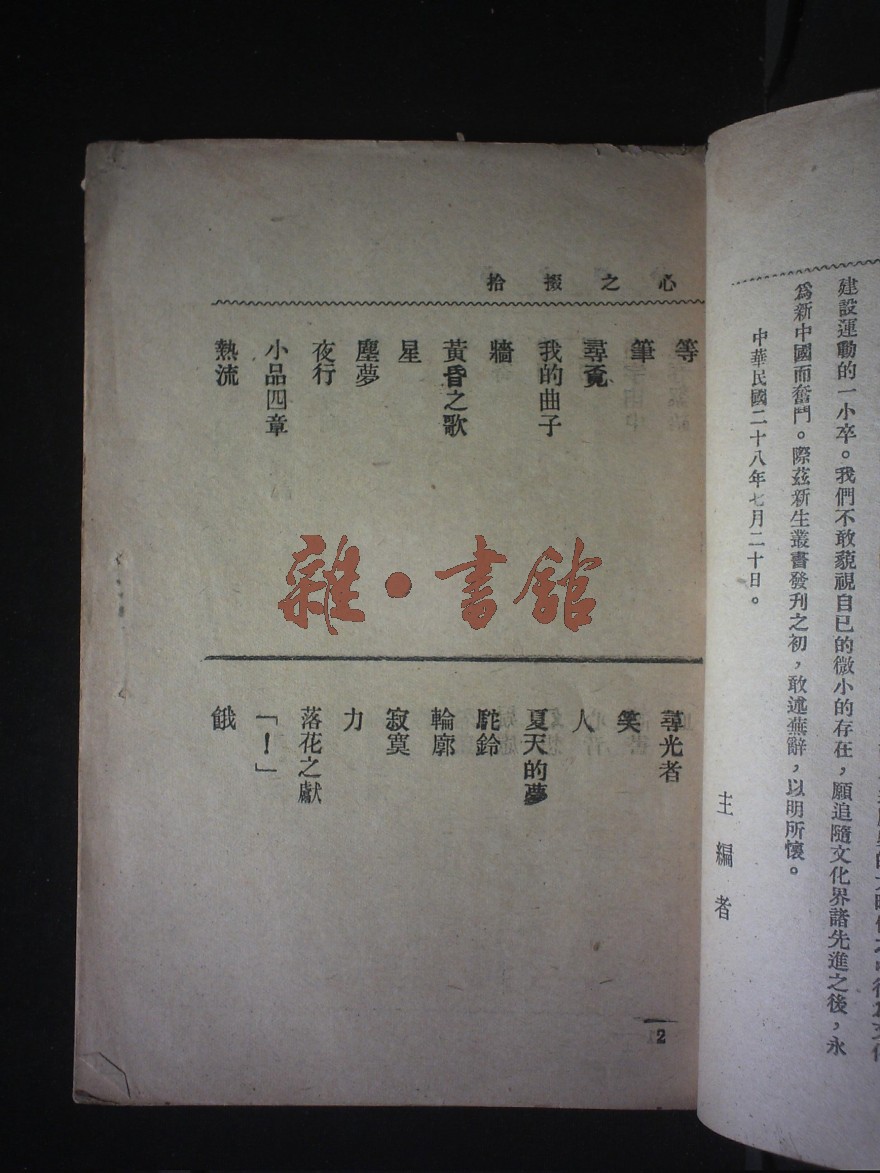 建設運動的一小卒。我們不敢藐視自已的微小的存在，願追隨文化界諸先進之後，永
爲新中國而奮鬥。際茲新生叢書發刊之初，敢述蕪辭，以明所懷。
中華民國二十八年七月二十日。
主編者
心之掇拾
等
筆
尋覔
我的曲子
牆
黃昏之歌
星
塵夢
夜行
小品四章
熱流
尋光者
笑
人
夏天的夢
駝鈴
輪廓
寂寞
力
落花之獻
「！」
餓
2
雜·書館